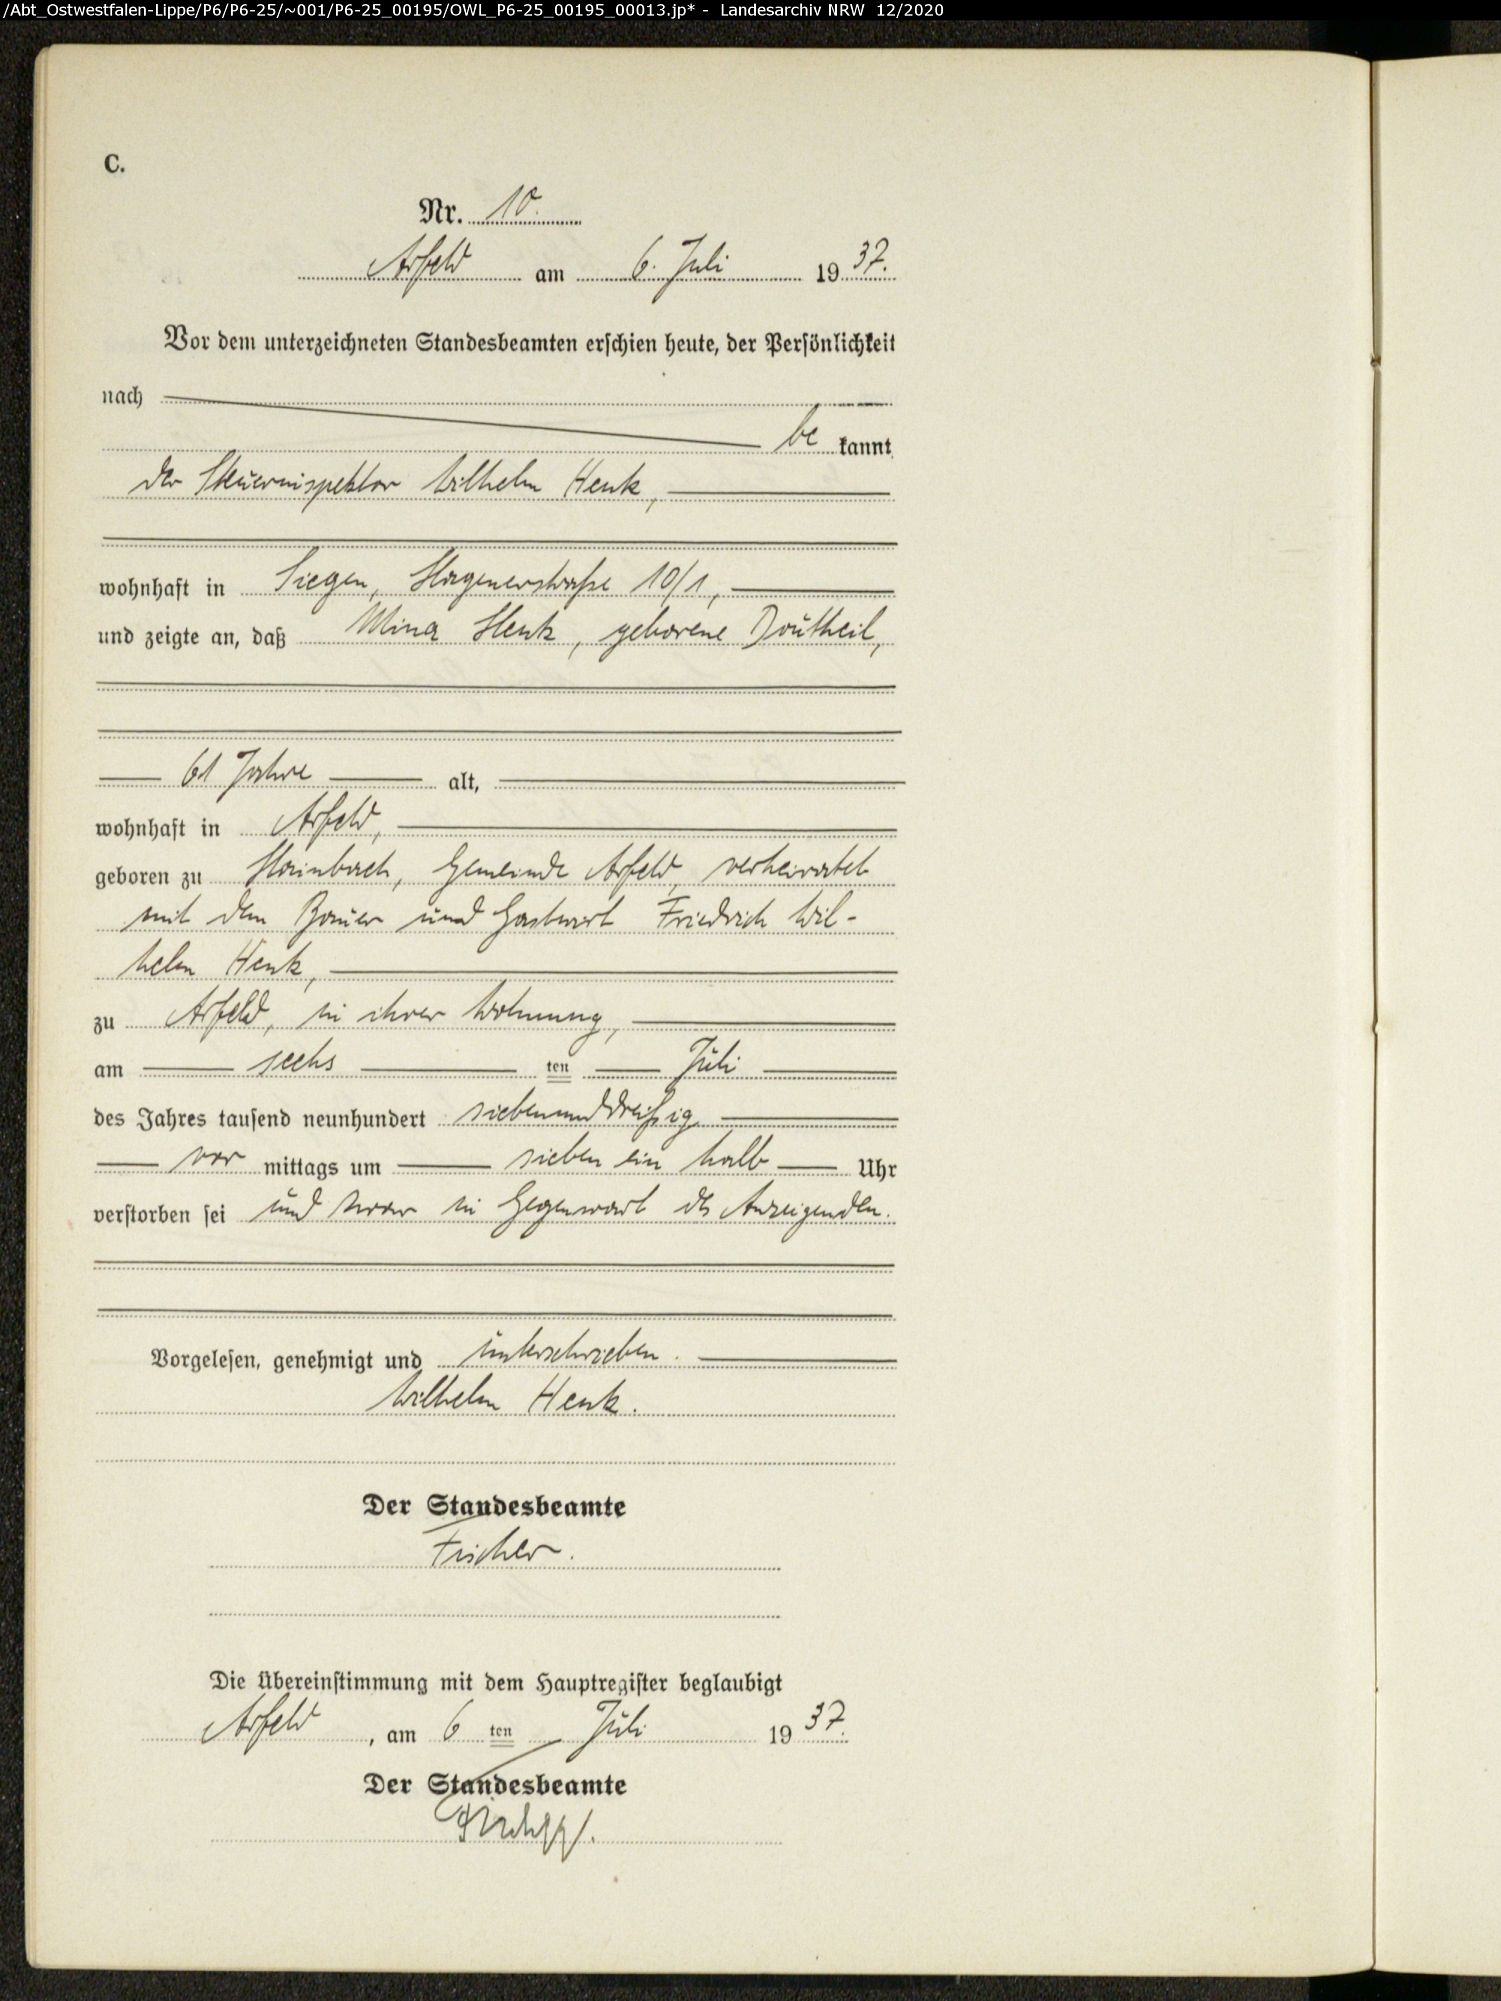 /Abt_Ostwestfalen-Lippe/P6/P6-25/~001/P6-25_00195/OWL_P6-25_00195_00013.jp* - Landesarchiv NRW 12/2020
C.
Nr. 10.
Arfeld am 6. Juli 1937.
Vor dem unterzeichneten Standesbeamten erschien heute, der Persönlichkeit
nach
be kannt,
der Steuerinspektor Wilhelm Henk,
wohnhaft in Siegen, Hagenerstraße 10/1,
und zeigte an, daß Mina Henk, geborene
61 Jahre alt,
wohnhaft in Arfeld,
geboren zu Hainbach, Gemeinde Arfeld, verheiratet
mit dem Bauer und Gastwirt Friedrich Wil-
helm Henk,
zu Arfeld, in ihrer Wohnung,
am sechs ten Juli
des Jahres tausend neunhundert siebenunddreißig
vor mittags um sieben ein halb Uhr
verstorben sei und zwar in Gegenwart des Anzeigenden.
Vorgelesen, genehmigt und unterschrieben.
Wilhelm Henk.
Der Standesbeamte
Fischer.
Die Übereinstimmung mit dem Hauptregister beglaubigt
Arfeld, am 6 ten Juli 1937.
Der Standesbeamte